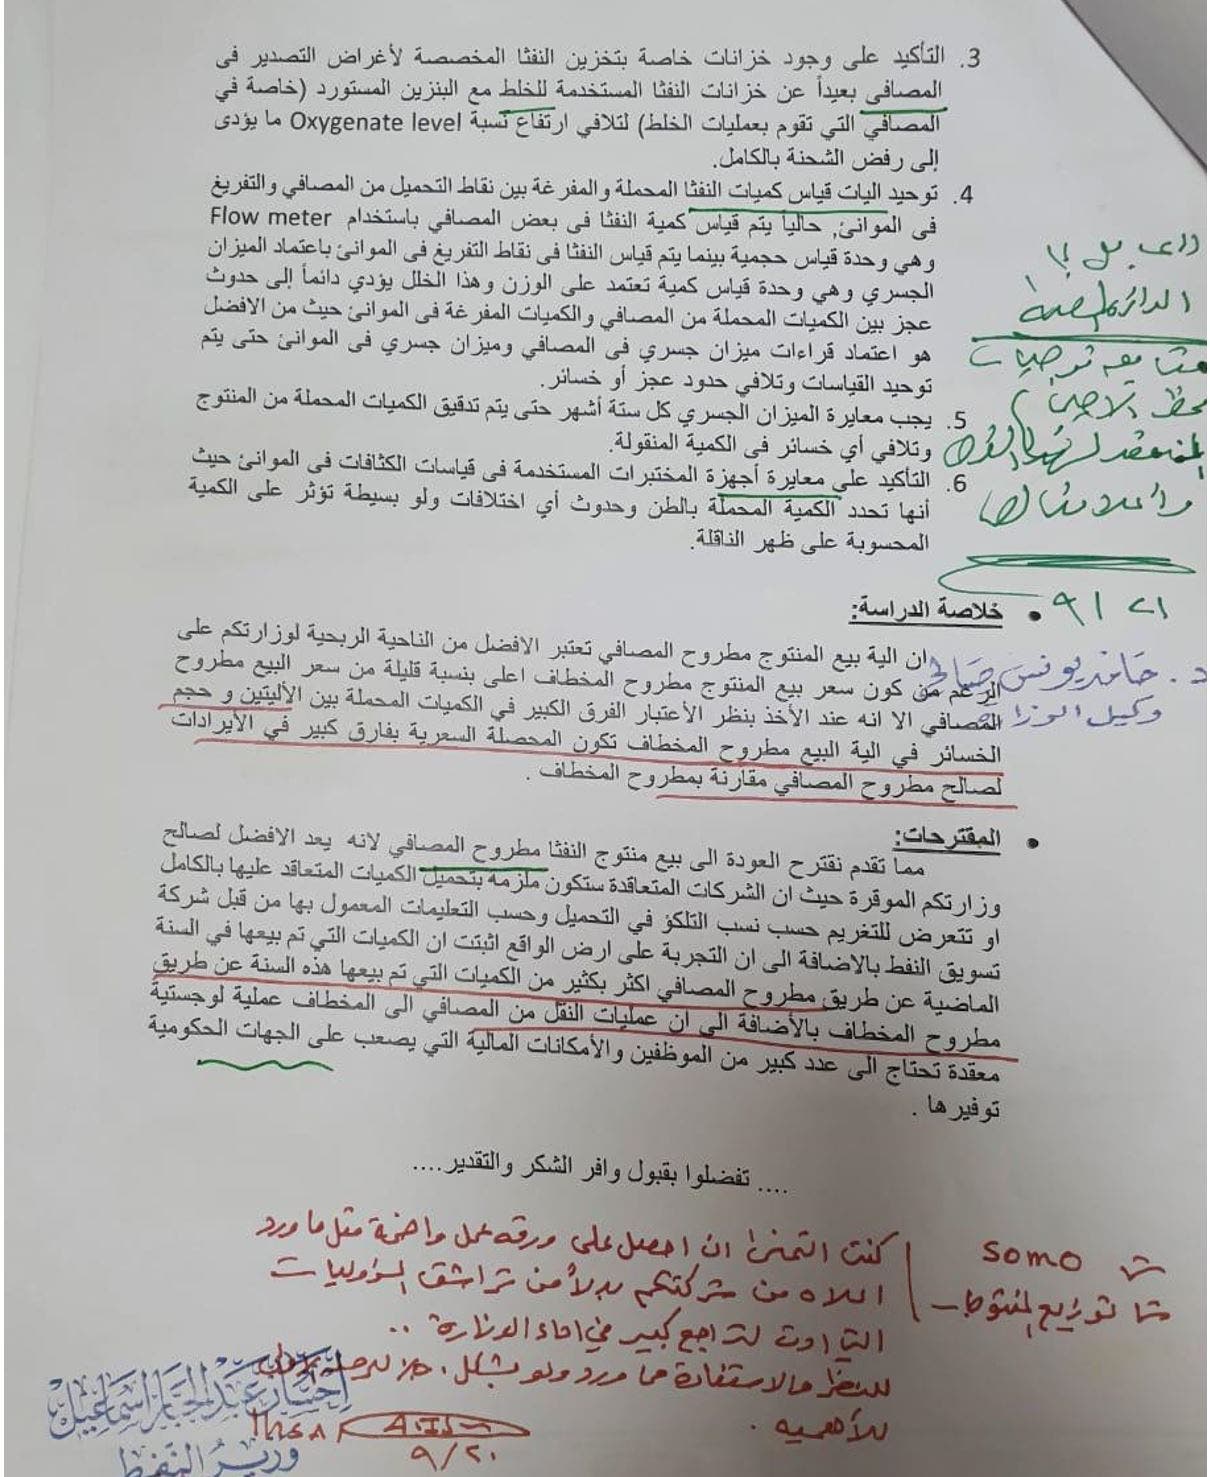 3. التأكيد على وجود خزانات خاصة بتخزين النفثا المخصصة لأغراض التصدير فى
المصافى بعيداً عن خزانات النفثا المستخدمة للخلط مع البنزين المستورد (خاصة في
المصافي التي تقوم بعمليات الخلط) لتلافي ارتفاع نسبة Oxygenate level ما يؤدى
إلى رفض الشحنة بالكامل.
4. توحيد اليات قياس كميات النفثا المحملة والمفرغة بين نقاط التحميل من المصافي والتفريغ
فى الموانئ, حالياً يتم قياس كمية النفثا فى بعض المصافي باستخدام Flow meter
وهي وحدة قياس حجمية بينما يتم قياس النفثا فى نقاط التفريغ فى الموانئ باعتماد الميزان
الجسري وهي وحدة قياس كمية تعتمد على الوزن وهذا الخلل يؤدي دائماً إلى حدوث
عجز بين الكميات المحملة من المصافي والكميات المفرغة فى الموانئ حيث من الافضل
هو اعتماد قراءات ميزان جسري فى المصافي وميزان جسري في الموانئ حتى يتم
توحيد القياسات وتلافي حدود عجز أو خسائر.
5. يجب معايرة الميزان الجسري كل ستة أشهر حتى يتم تدقيق الكميات المحملة من المنتوج
وتلافي أي خسائر فى الكمية المنقولة.
6. التأكيد على معايرة أجهزة المختبرات المستخدمة فى قياسات الكثافات فى الموانئ حيث
أنها تحدد الكمية المحملة بالطن وحدوث أي اختلافات ولو بسيطة تؤثر على الكمية
المحسوبة على ظهر الناقلة.
٩/٢١
د. حامد يونس صالح
وكيل الوزارة
• خلاصة الدراسة:
ان الية بيع المنتوج مطروح المصافي تعتبر الافضل من الناحية الربحية لوزارتكم على
الرغم من كون سعر بيع المنتوج مطروح المخطاف اعلى بنسبة قليلة من سعر البيع مطروح
المصافي الا انه عند الأخذ بنظر الأعتبار الفرق الكبير في الكميات المحملة بين الأليتين و حجم
الخسائر في الية البيع مطروح المخطاف تكون المحصلة السعرية بفارق كبير في الأيرادات
لصالح مطروح المصافي مقارنة بمطروح المخطاف .
• المقترحات:
مما تقدم نقترح العودة الى بيع منتوج النفثا مطروح المصافي لانه يعد الافضل لصالح
وزارتكم الموقرة حيث ان الشركات المتعاقدة ستكون ملزمة بتحميل الكميات المتعاقد عليها بالكامل
او تتعرض للتغريم حسب نسب التلكؤ في التحميل وحسب التعليمات المعمول بها من قبل شركة
تسويق النفط بالاضافة الى ان التجربة على ارض الواقع اثبتت ان الكميات التي تم بيعها في السنة
الماضية عن طريق مطروح المصافي اكثر بكثير من الكميات التي تم بيعها هذه السنة عن طريق
مطروح المخطاف بالأضافة الى ان عمليات النقل من المصافي الى المخطاف عملية لوجستية
معقدة تحتاج الى عدد كبير من الموظفين والأمكانات المالية التي يصعب على الجهات الحكومية
توفيرها .
.... تفضلوا بقبول وافر الشكر والتقدير....
SOMO
توزيع المنتوجات
كنت اتمنى ان احصل على ورقة عمل واضحة مثل ما ورد
اعلاه من شركتكم بدلاً من تراشق المسؤوليات
التي ادت لتراجع كبير في اداء الوزارة ..
للنظر والاستفادة مما ورد ولو بشكل
للأهمية .
٩/٢٠
إحسان عبد الجبار اسماعيل
وزير النفط